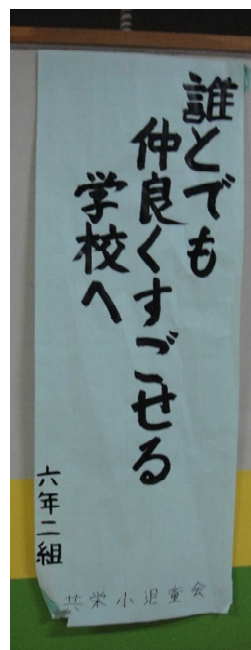 誰とでも
仲良くすごせる
学校へ
六年二組
共栄小児童会